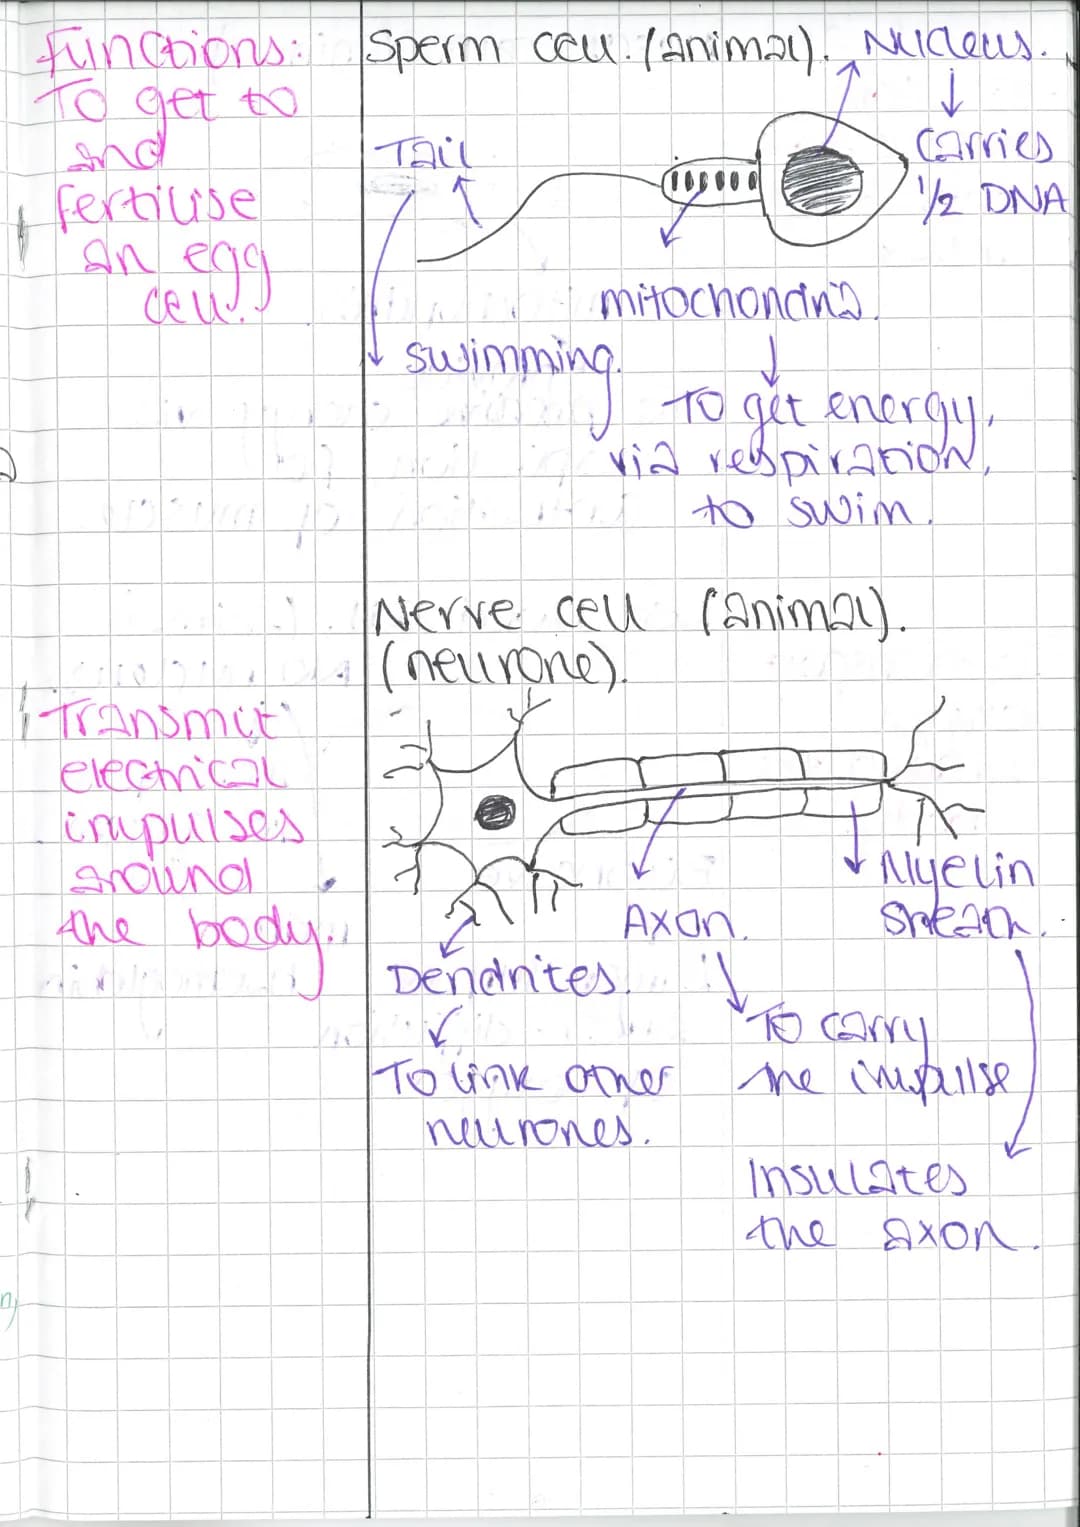 Functions:
To get to
and
fertilise
an egg
cell.
Sperm cell. (animal).
Nucleus.
Carries
1/2 DNA
Tail
swimming.
mitochondria.
To get energy,
via respiration,
to swim.
Transmit
electrical
impulses
around
the body.
Nerve cell (animal).
(neurone).
Axon.
Myelin
Sheath.
Dendrites.
To carry
the impulse
To link other
neurones.
Insulates
the axon.